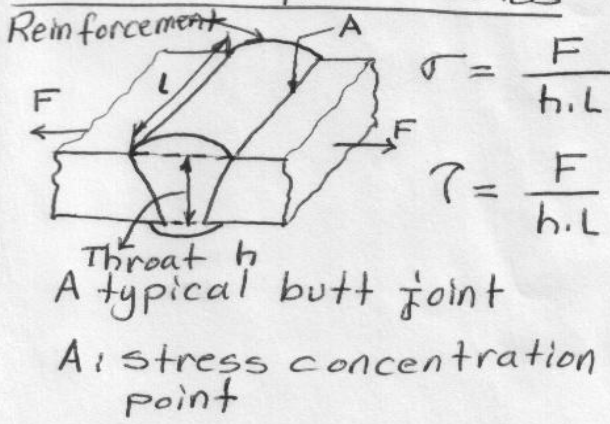 Reinforcement
A
L
F
F
σ = F / h.L
τ = F / h.L
Throat h
A typical butt joint
A: stress concentration
point